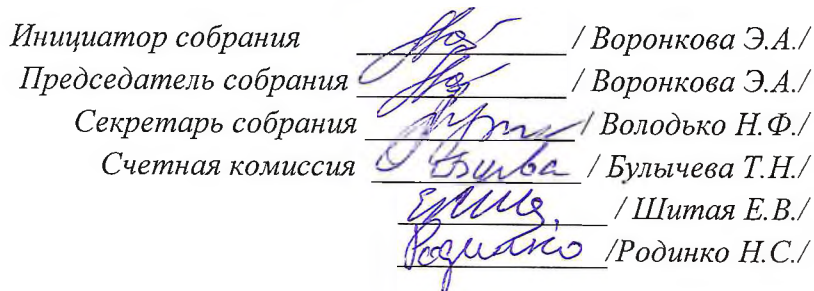 Инициатор собрания / Воронкова Э.А./
Председатель собрания / Воронкова Э.А./
Секретарь собрания / Володько Н.Ф./
Счетная комиссия / Булычева Т.Н./
/ Шитая Е.В./
Родинко /Родинко Н.С./